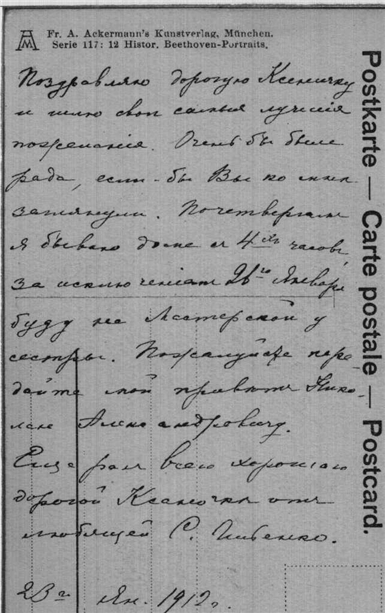 Fr. A. Ackermann's Kunstverlag, München.
Serie 117: 12 Histor. Beethoven-Portraits.
Postkarte — Carte postale — Postcard.
Поздравляю дорогую Ксеничку
и шлю свои самыя лучшія
пожеланія. Очень бы была
рада, если-бы Вы ко мнѣ
заглянули. По четвергамъ
я бываю дома съ 4хъ часовъ,
за исключеніемъ 26го Января
буду на Мастерской у
сестры. Пожалуйста пере-
дайте мой приветъ Нико-
лаю Александровичу.
Еще разъ всего хорошаго
дорогой Ксеничкѣ отъ
любящей С.
23го Ян. 1912г.